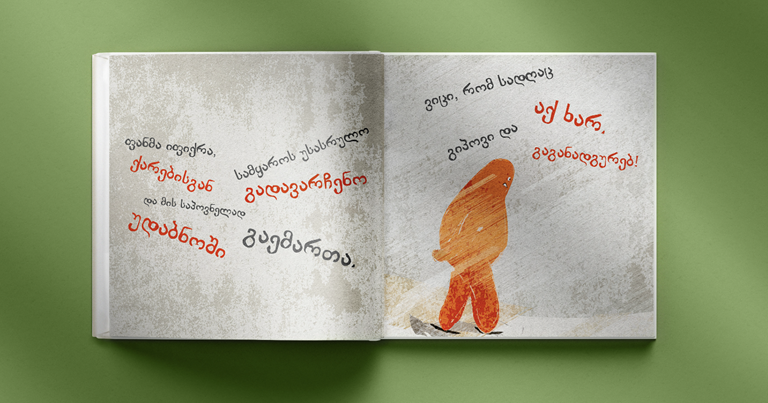 ფანმა იფიქრა,
სამყაროს უსასრულო
ქარებისგან გადავარჩენო
და მის საპოვნელად
უდაბნოში გაემართა.
ვიცი, რომ სადღაც
აქ ხარ.
გიპოვი და
გაგანადგურებ!